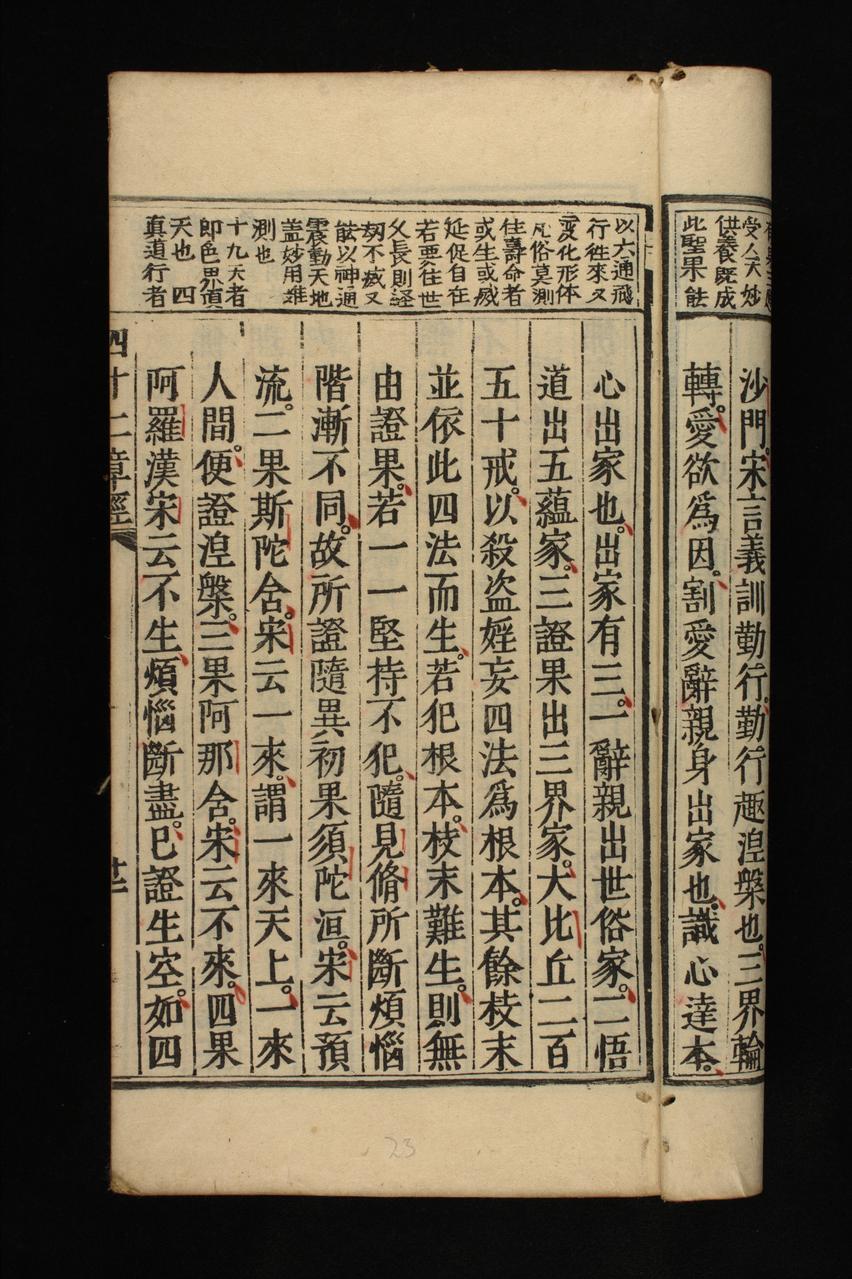 受人天妙
供養既成
此聖果能
沙門。宋言義訓勤行。勤行趣涅槃也。三界輪
轉。愛欲爲因。割愛辭親身出家也。識心達本。
以六通飛
行徃來又
変化形体
凡俗莫測
住壽命者
或生或滅
延促自在
若要住世
久長則經
刼不滅又
能以神通
震動天地
盖妙用難
測也
十九天者
即色界頂
天也 四
真道行者
心出家也。出家有三。一辭親出世俗家。二悟
道出五蘊家。三證果出三界家。大比丘二百
五十戒。以殺盜婬妄四法爲根本。其餘枝末
並依此四法而生。若犯根本。枝末難生。則無
由證果。若一一堅持不犯。隨見脩所斷煩惱
階漸不同。故所證隨異。初果須陀洹。宋云預
流。二果斯陀含。宋云一來。謂一來天上。一來
人間。便證涅槃。三果阿那含。宋云不來。四果
阿羅漢。宋云不生。煩惱斷盡。已證生空。如四
四十二章經
廿二
23